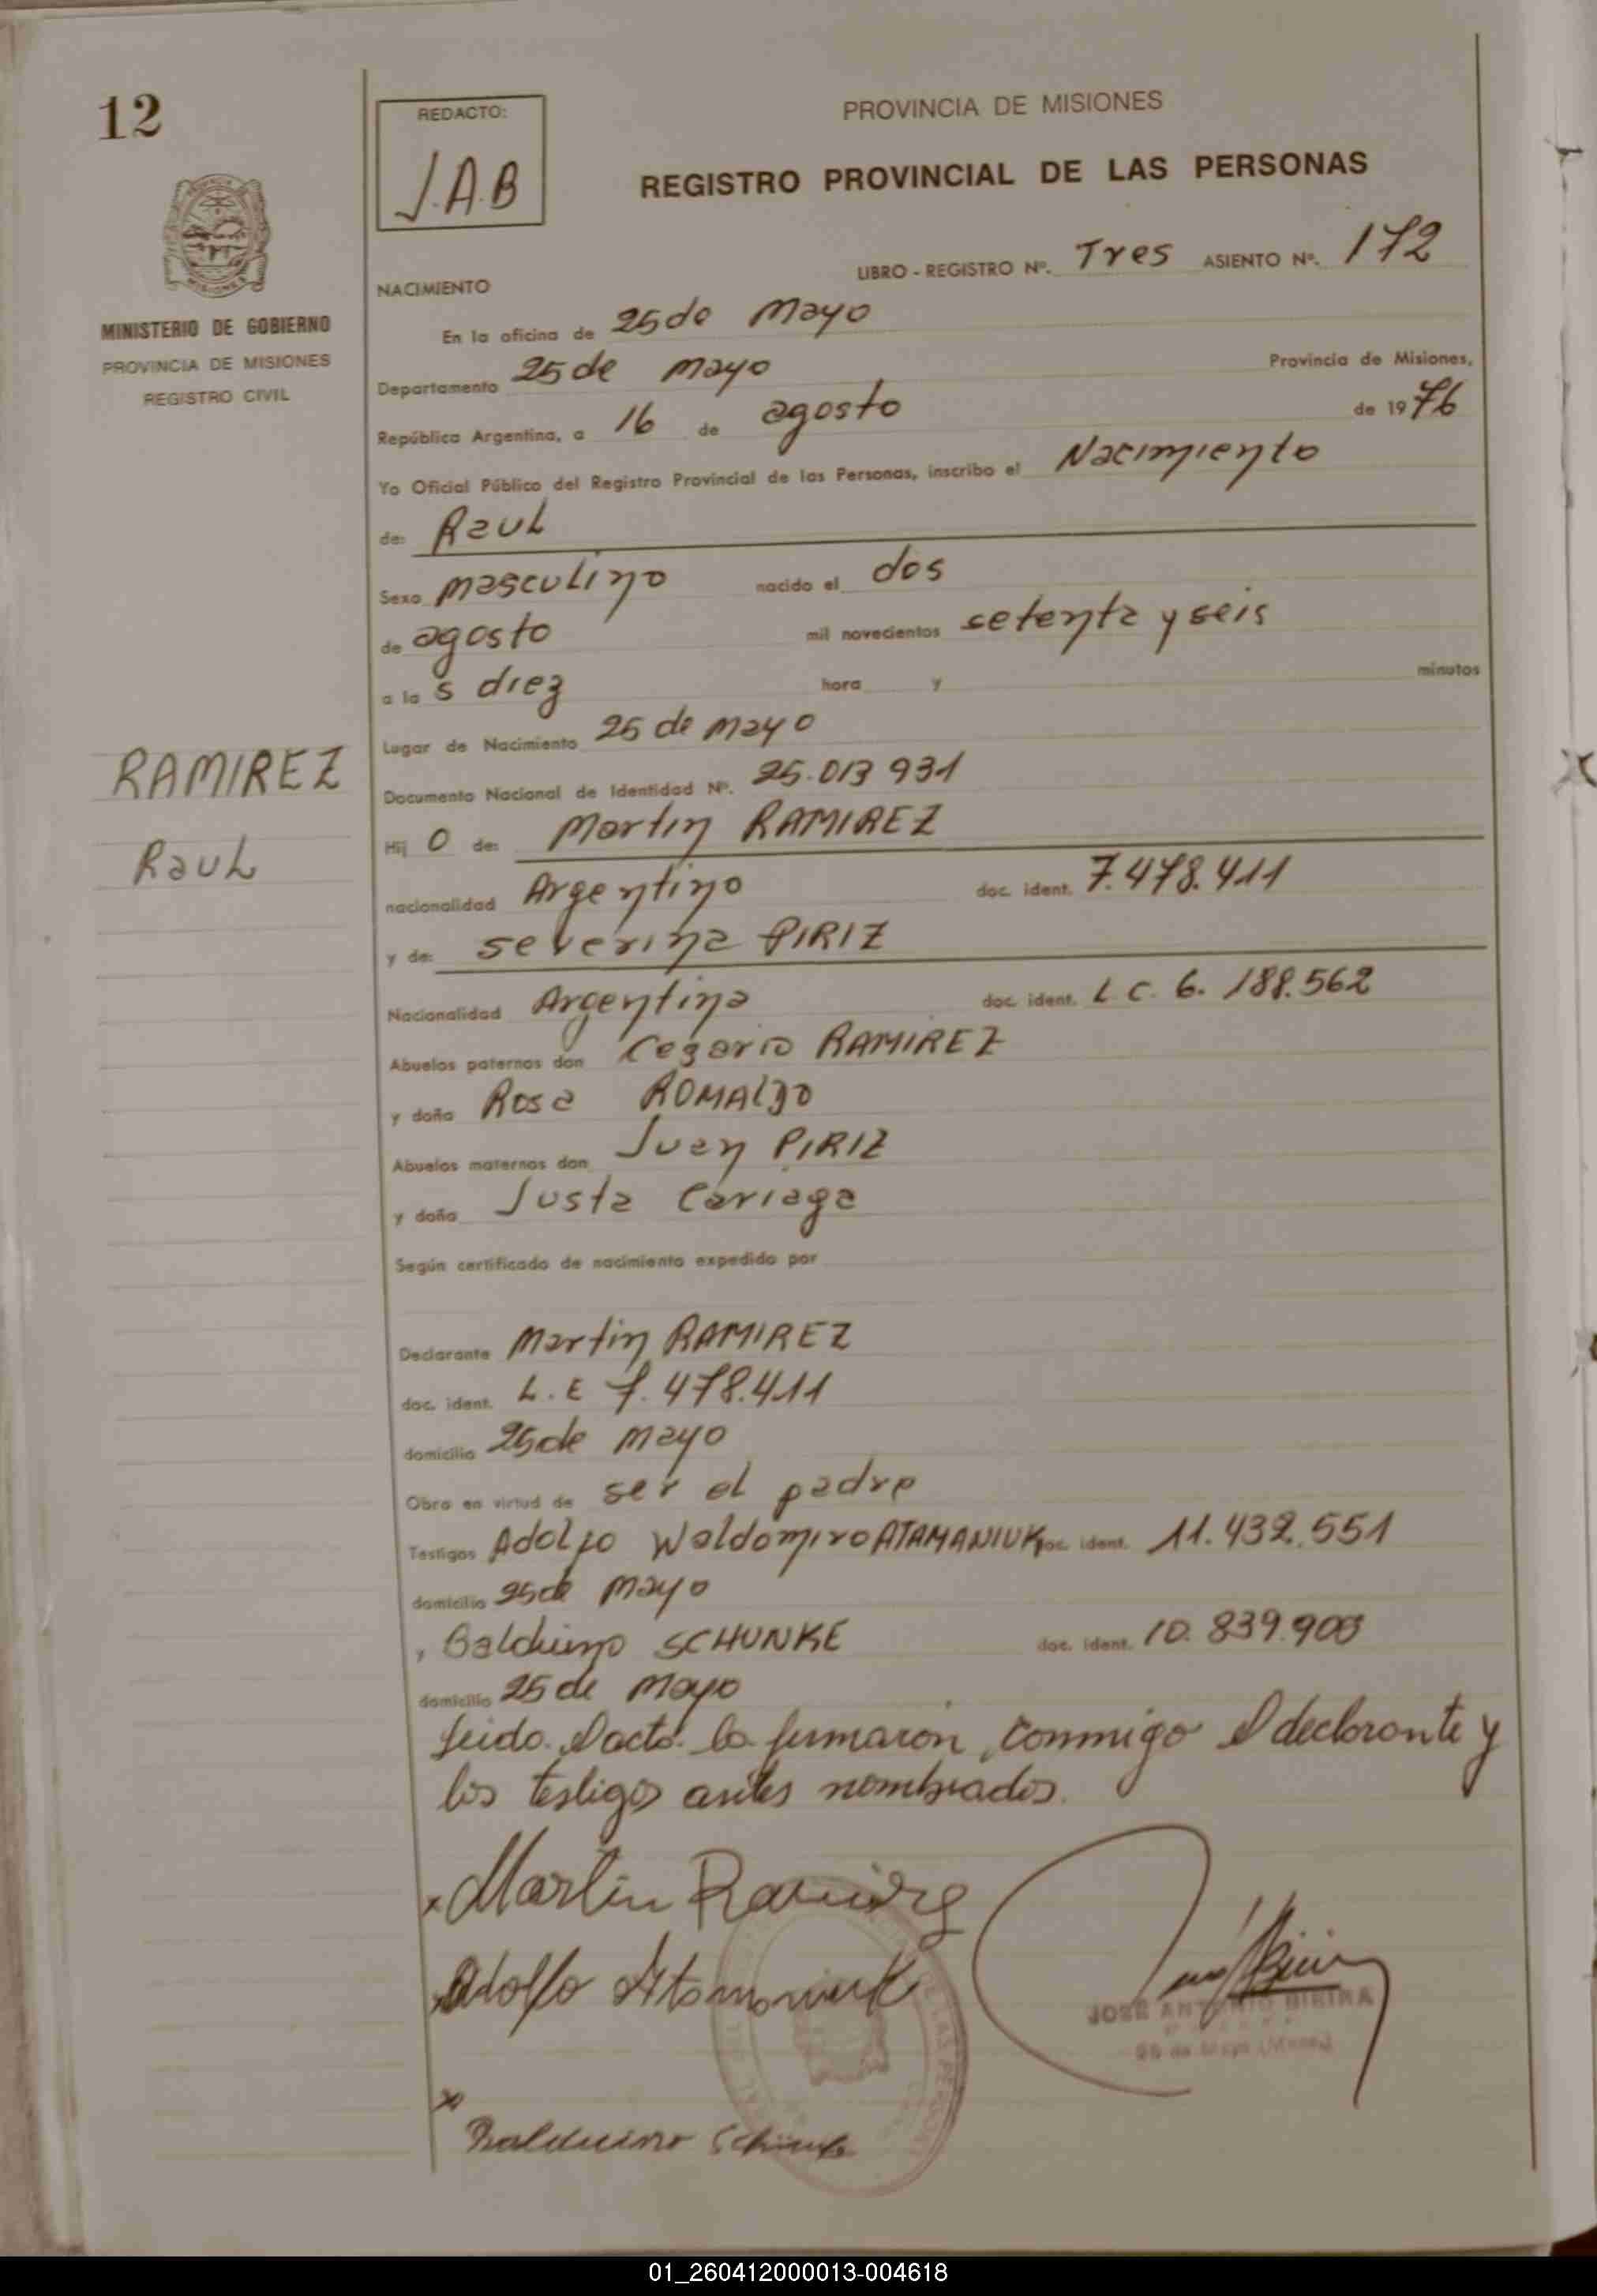 12
MINISTERIO DE GOBIERNO
PROVINCIA DE MISIONES
REGISTRO CIVIL
RAMIREZ
Raul
REDACTO:
J.A.B
PROVINCIA DE MISIONES
REGISTRO PROVINCIAL DE LAS PERSONAS
LIBRO - REGISTRO Nº. Tres ASIENTO Nº. 172
NACIMIENTO
En la oficina de 25 de Mayo
Departamento 25 de mayo Provincia de Misiones,
República Argentina, a 16 de agosto de 1976
Yo Oficial Público del Registro Provincial de las Personas, inscribo el Nacimiento
de: Raul
Sexo masculino nacido el dos
de agosto mil novecientos setenta y seis
a la s diez hora y minutos
Lugar de Nacimiento 25 de mayo
Documento Nacional de Identidad Nº. 25.013 931
Hij o de: Martin RAMIREZ
nacionalidad Argentino doc. ident. 7.478.411
y de: severina PIRIZ
Nacionalidad Argentina doc. ident. L C. 6. 188.562
Abuelos paternos don RAMIREZ
y doña Rosa ROMALDO
Abuelos maternos don Juan PIRIZ
y doña Justa Cariaga
Según certificado de nacimiento expedido por
Declarante Martin RAMIREZ
doc. ident. L.E 7.478.411
domicilio 25 de mayo
Obra en virtud de ser el padre
Testigos Adolfo Waldomiro ATAMANIUK doc. ident. 11.432.551
domicilio 25 de mayo
y Balduino SCHUNKE doc. ident. 10.839.900
domicilio 25 de mayo
Leido el acto la firmaron, conmigo el declarante y
los testigos antes nombrados.
Martin Ramirez
Adolfo Atamaniuk
JOSE ANTONIO
25 de Mayo (Mnes.)
Balduino Schunke
01_260412000013-004618